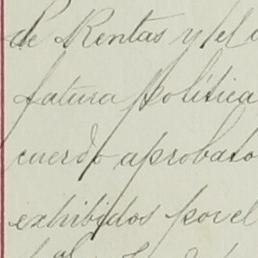 de Rentas y el
fatura política
cuerdo aprobato
exhibidos por el